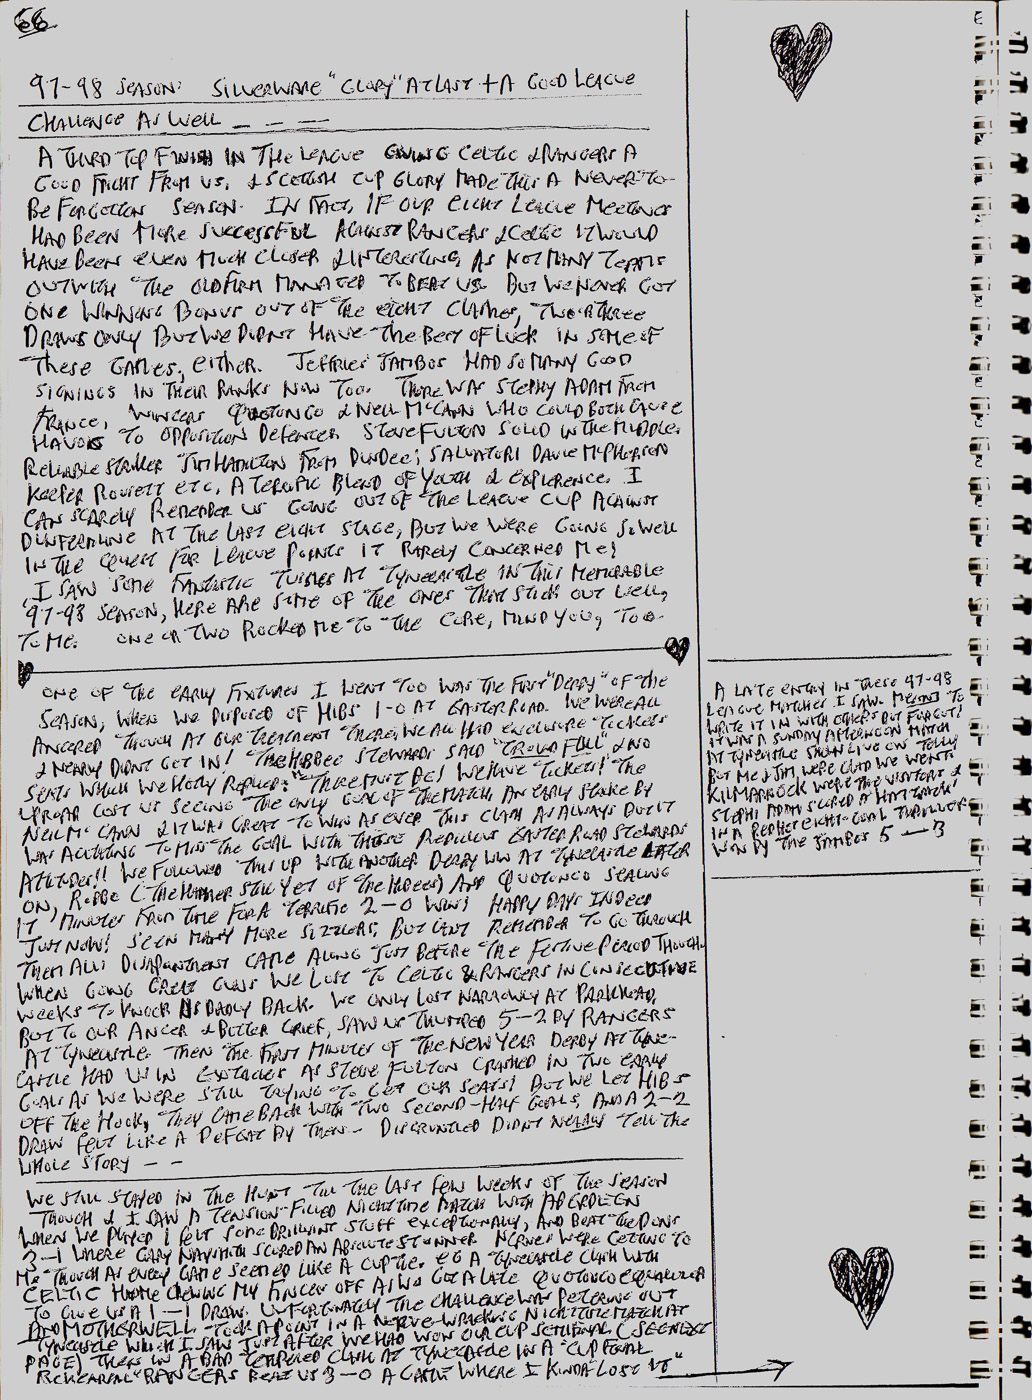 66
97-98 SEASON: SILVERWARE "GLORY" AT LAST + A GOOD LEAGUE
CHALLENGE AS WELL _ _ _
A THIRD TOP FINISH IN THE LEAGUE GIVING CELTIC & RANGERS A
GOOD FRIGHT FROM US, & SCOTTISH CUP GLORY MADE THIS A NEVER TO
BE FORGOTTON SEASON. IN FACT, IF OUR EIGHT LEAGUE MEETINGS
HAD BEEN MORE SUCCESSFUL AGAINST RANGERS & CELTIC IT WOULD
HAVE BEEN EVEN MUCH CLOSER & INTERESTING, AS NOT MANY TEAMS
OUTWITH THE OLD FIRM MANAGED TO BEAT US. BUT WE NEVER GOT
ONE WINNING BONUS OUT OF THE EIGHT CLASHES, TWO OR THREE
DRAWS ONLY BUT WE DIDN'T HAVE THE BEST OF LUCK IN SOME OF
THESE GAMES, EITHER. JEFFRIES' JAMBOS HAD SO MANY GOOD
SIGNINGS IN THEIR RANKS NOW TOO. THERE WAS STEPHY ADAM FROM
FRANCE, WINGERS QUOTONGO & NEIL McCANN WHO COULD BOTH CAUSE
HAVOC TO OPPOSITION DEFENCES. STEVE FULTON SOLID IN THE MIDDLE,
RELIABLE STRIKER JIM HAMILTON FROM DUNDEE, SALVATORI DAVE McPHERSON
KEEPER ROUSETT ETC, A TERRIFIC BLEND OF YOUTH & EXPERIENCE. I
CAN SCARELY REMEMBER US GOING OUT OF THE LEAGUE CUP AGAINST
DUNFERMLINE AT THE LAST EIGHT STAGE, BUT WE WERE GOING SO WELL
IN THE QUEST FOR LEAGUE POINTS IT RARELY CONCERNED ME!
I SAW SOME FANTASTIC TUSSLES AT TYNECASTLE IN THIS MEMORABLE
97-98 SEASON, HERE ARE SOME OF THE ONES THAT STICK OUT WELL,
TO ME. ONE OR TWO ROCKED ME TO THE CORE, MIND YOU, TOO.
ONE OF THE EARLY FIXTURES I WENT TOO WAS THE FIRST "DERBY" OF THE
SEASON, WHEN WE DISPOSED OF HIBS 1-0 AT EASTER ROAD. WE WERE ALL
ANGERED THOUGH AT OUR TREATMENT THERE, WE ALL HAD ENCLOSURE TICKETS
& NEARLY DIDNT GET IN! THE HIBBEE STEWARDS SAID "GROUND FULL", & NO
SEATS WHICH WE HOTLY REPLIED: "THERE MUST BE! WE HAVE TICKETS! THE
UPROAR COST US SEEING THE ONLY GOAL OF THE MATCH AN EARLY STRIKE BY
NEIL McCANN & IT WAS GREAT TO WIN AS EVER THIS CLASH AS ALWAYS BUT IT
WAS AGITATING TO MISS THE GOAL WITH THOSE REDICULOUS EASTER ROAD STEWARDS
ATTITUDES!! WE FOLLOWED THIS UP WITH ANOTHER DERBY WIN AT TYNECASTLE LATER
ON, ROBBO (THE HAMMER STILL YET OF THE HIBEES) AND QUOTONGO SEALING
IT MINUTES FROM TIME FOR A TERRIFIC 2-0 WIN! HAPPY DAYS INDEED
JUST NOW! SEEN MANY MORE SIZZLERS, BUT CAN'T REMEMBER TO GO THROUGH
THEM ALL! DISAPOINTMENT CAME ALONG JUST BEFORE THE FESTIVE PERIOD THOUGH
WHEN GOING GREAT GUNS WE LOST TO CELTIC & RANGERS IN CONSECUTIVE
WEEKS TO KNOCK US BADLY BACK. WE ONLY LOST NARROWLY AT PARKHEAD,
BUT TO OUR ANGER & BITTER GRIEF, SAW US THUMPED 5-2 BY RANGERS
AT TYNECASTLE. THEN THE FIRST MINUTES OF THE NEW YEAR DERBY AT TYNE-
CASTLE HAD US IN EXSTACIES AS STEVE FULTON CRASHED IN TWO EARLY
GOALS AS WE WERE STILL TRYING TO GET OUR SEATS! BUT WE LET HIBS
OFF THE HOOK, THEY CAME BACK WITH TWO SECOND-HALF GOALS, AND A 2-2
DRAW FELT LIKE A DEFEAT BY THEN - DISGRUNTLED DIDNT NEARLY TELL THE
WHOLE STORY - -
WE STILL STAYED IN THE HUNT TILL THE LAST FEW WEEKS OF THE SEASON
THOUGH & I SAW A TENSION-FILLED NIGHTTIME MATCH WITH ABERDEEN
WHEN WE PLAYED I FELT SOME BRILLIANT STUFF EXCEPTIONALLY, AND BEAT THE DONS
3-1 WHERE GARY NAYSMITH SCORED AN ABSOLUTE STUNNER NERVES WERE GETTING TO
ME THOUGH AS EVERY GAME SEEMED LIKE A CUP TIE. EG A TYNECASTLE CLASH WITH
CELTIC HAD ME CHEWING MY FINGERS OFF AS WE GOT A LATE QUOTONGO EQUALIZER
TO GIVE US A 1-1 DRAW. UNFORTUNATELY THE CHALLENGE WAS PETERING OUT
AND MOTHERWELL TOOK A POINT IN A NERVE-WRACKING NIGHTTIME MATCH AT
TYNECASTLE WHICH I SAW JUST AFTER WE HAD WON OUR CUP SEMIFINAL (SEE NEXT
PAGE) THEN IN A BAD TEMPERED CLASH AT TYNECASTLE IN A "CUP FINAL
REHEARSAL" RANGERS BEAT US 3-0 A GAME WHERE I KINDA "LOST IT"
A LATE ENTRY IN THESE 97-98
LEAGUE MATCHES I SAW. MEANT TO
WRITE IT IN WITH OTHERS BUT FORGOT!
IT WAS A SUNDAY AFTERNOON MATCH
AT TYNECASTLE SHOWN LIVE ON TELLY
BUT ME & JIM WERE GLAD WE WENT.
KILMARNOCK WERE THE VISITORS &
STEPH ADAM SCORED A HAT TRACK
IN A PERFECT EIGHT-GOAL THRILLER
WON BY THE JAMBOS 5-3